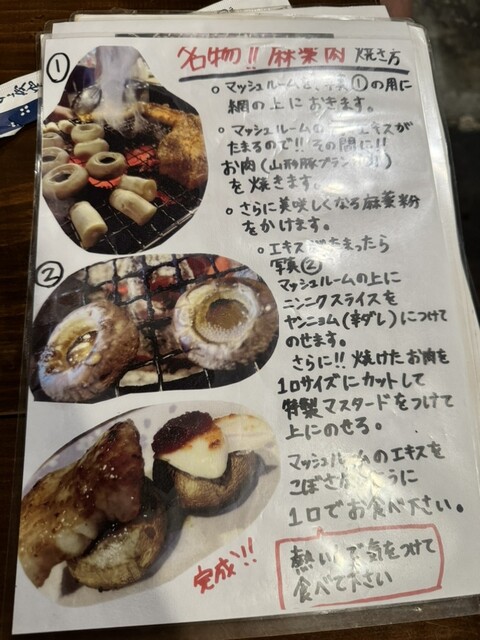 名物!! 麻薬肉 焼き方
①
○ マッシュルームを、写真①の用に
網の上におきます。
○ マッシュルームの エキスが
たまるので!! その間に!!
お肉(山形豚ブランド
を焼きます。
○ さらに美味しくなる麻薬粉
をかけます。
○ エキスがたまったら
写真②
②
マッシュルームの上に
ニンニクスライスを
ヤンニョム(辛ダレ)につけて
のせます。
さらに!! 焼けたお肉を
1口サイズにカットして
特製マスタードをつけて
上にのせる。
マッシュルームのエキスを
こぼさないように
1口でお食べ下さい。
完成!!
熱いので気をつけて
食べて下さい